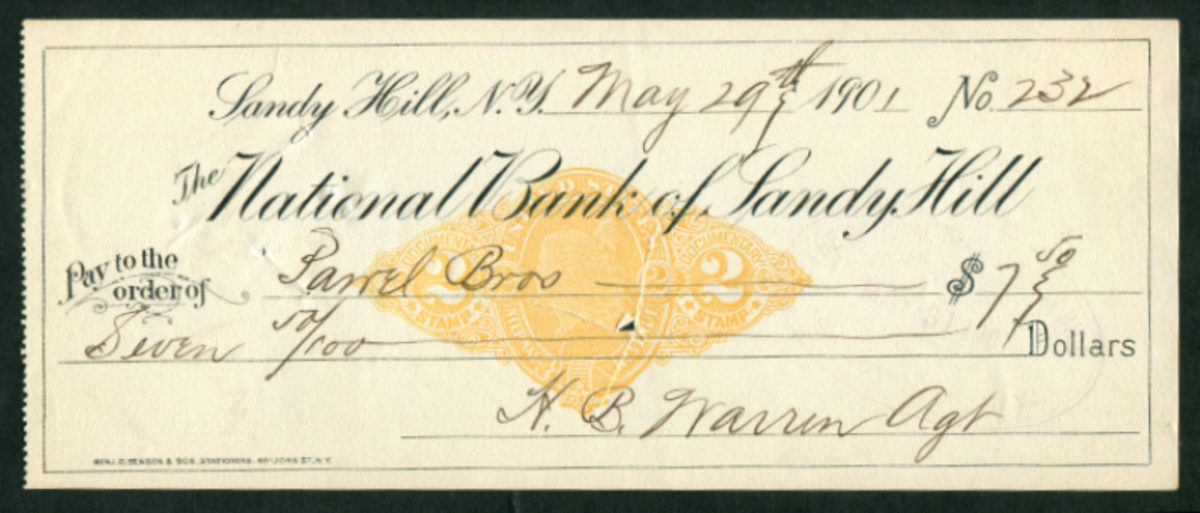 Sandy Hill, N.Y. May 29th 1901 No. 232
The National Bank of Sandy Hill
UNITED STATES
DOCUMENTARY DOCUMENTARY
Pay to the order of Bros $7 50
2 2
STAMP STAMP
Seven 50/100 Dollars
H. B. Warren Agt